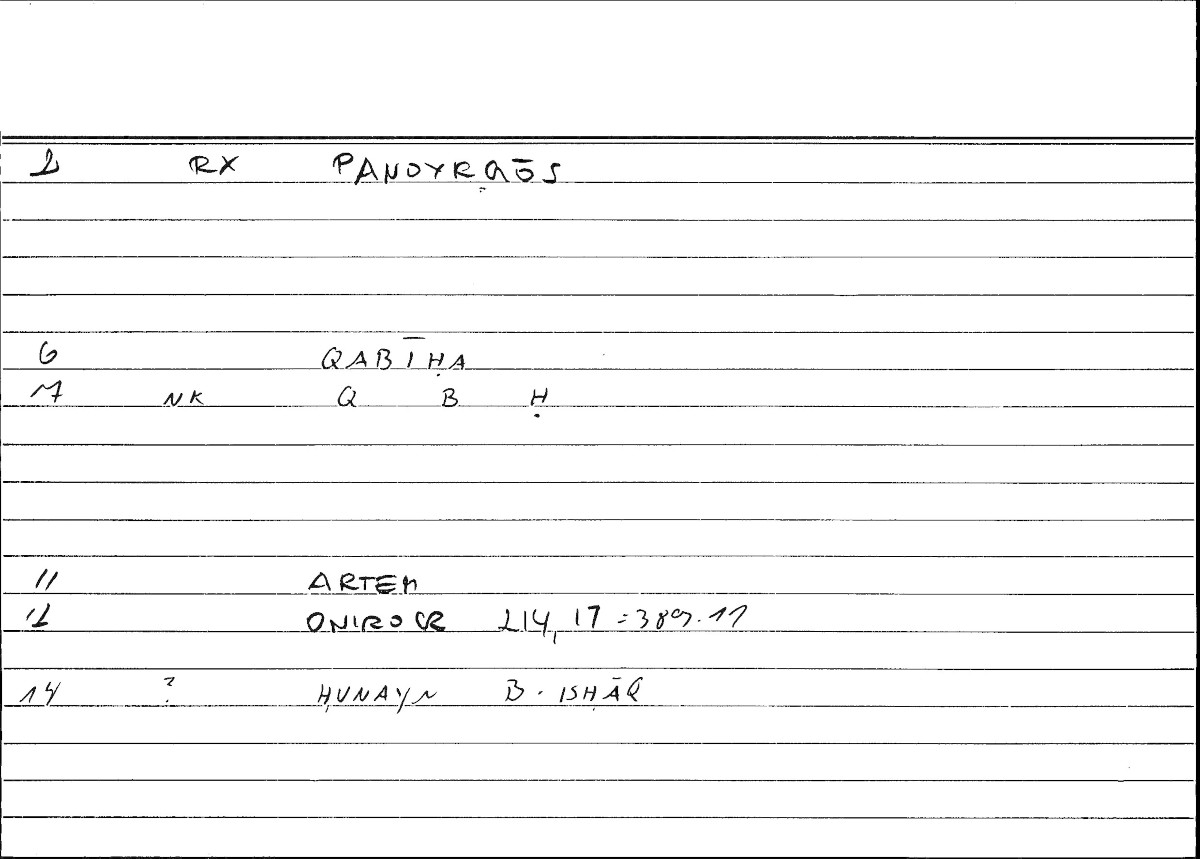 2 RX PANOYRG̣ŌS
6 QABĪḤA
7 NK Q B Ḥ
11 ARTEM
12 ONIROCR 214,17=389.11
14 ? ḤUNAYN B. ISḤĀQ